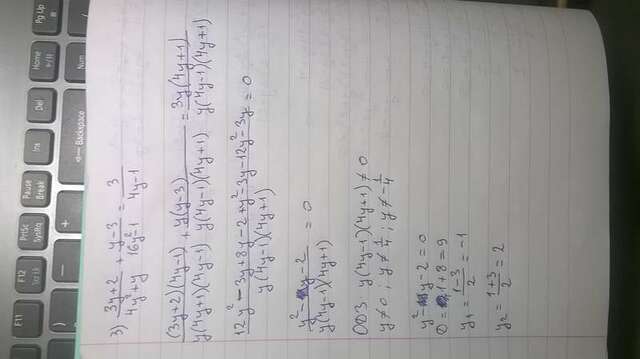 F11 F12 PrtSc SysRq Pause Break Ins Del Home Pg Up
Backspace Num
3) (3y+2)/(4y²+y) + (y-3)/(16y²-1) = 3/(4y-1)
(3y+2)(4y-1)/(y(4y+1)(4y-1)) + y(y-3)/(y(4y-1)(4y+1)) = 3y(4y+1)/(y(4y-1)(4y+1))
(12y²-3y+8y-2+y²-3y-12y²-3y)/(y(4y-1)(4y+1)) = 0
(y²-y-2)/(y(4y-1)(4y+1)) = 0
ОДЗ: y(4y-1)(4y+1)≠0
y≠0; y≠1/4; y≠-1/4
y²-y-2=0
D=1+8=9
y₁=(1-3)/2=-1
y₂=(1+3)/2=2